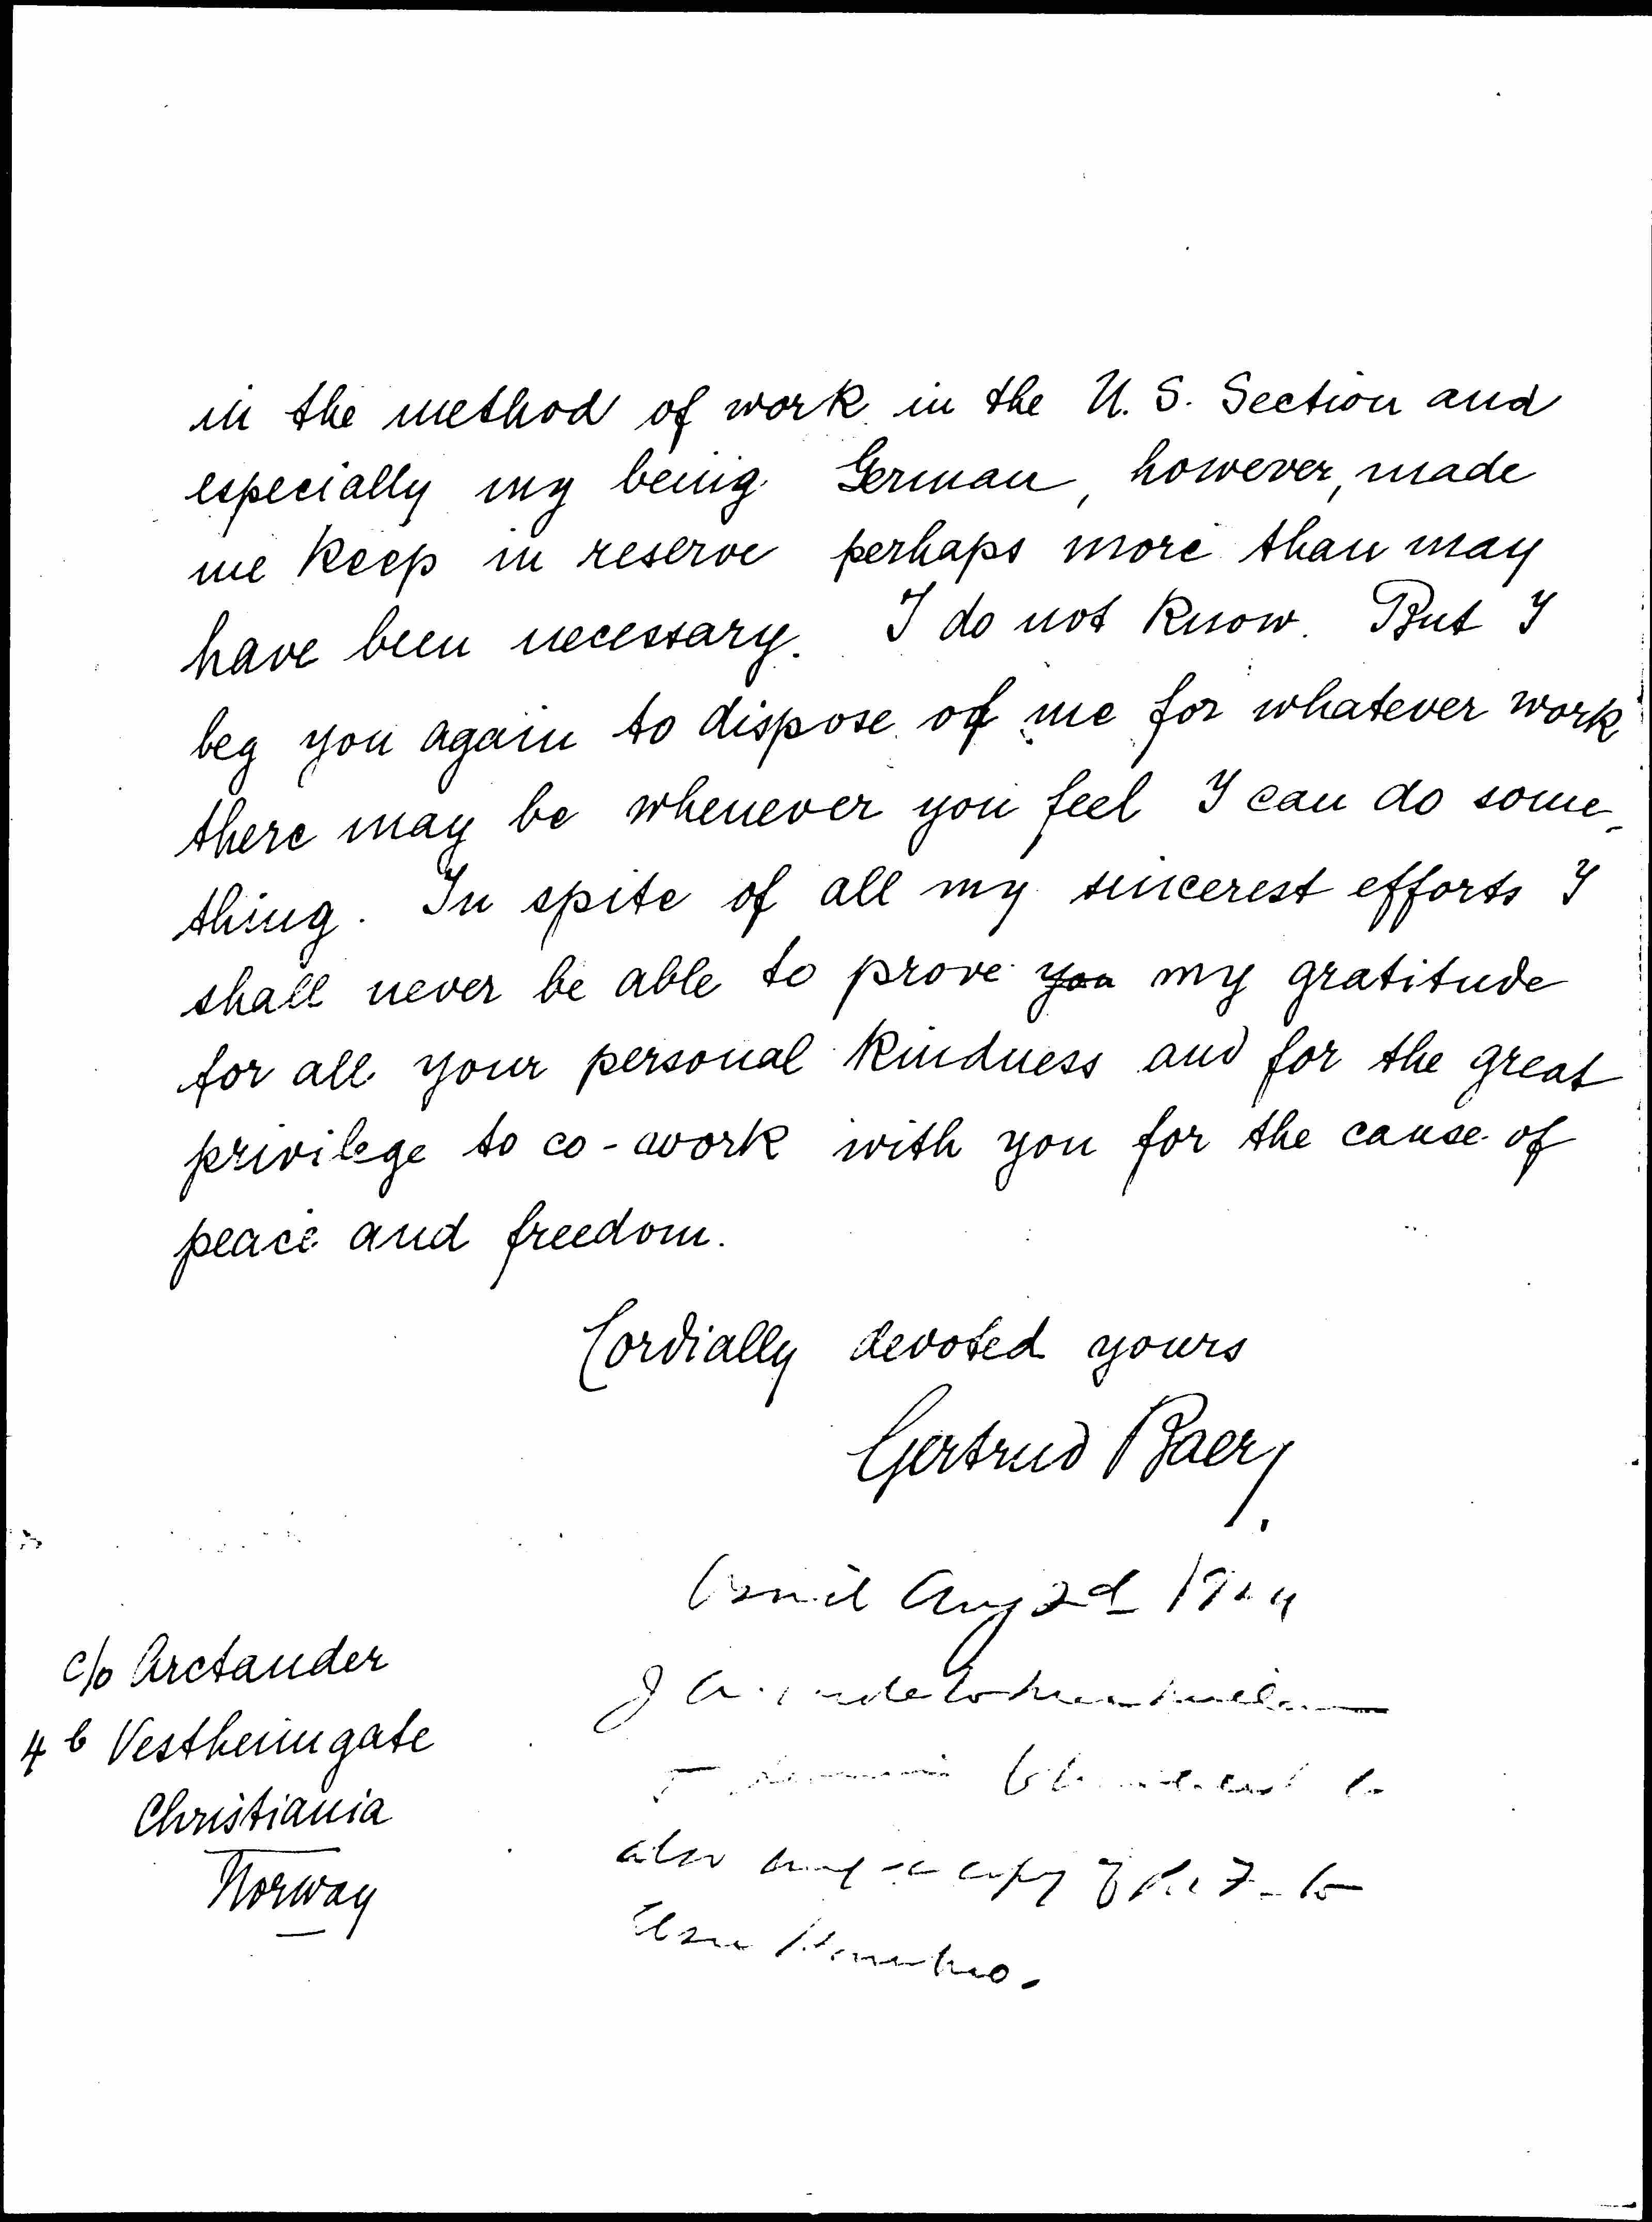 in the method of work in the U. S. Section and
especially my being German, however, made
me keep in reserve perhaps more than may
have been necessary. I do not know. But I
beg you again to dispose of me for whatever work
there may be whenever you feel I can do some-
thing. In spite of all my sincerest efforts I
shall never be able to prove you my gratitude
for all your personal kindness and for the great
privilege to co-work with you for the cause of
peace and freedom.
Cordially devoted yours
Gertrud Baer
Aug 2d 1924
c/o Arctander
4 b Vestheimgate
Christiania
Norway
also copy of to